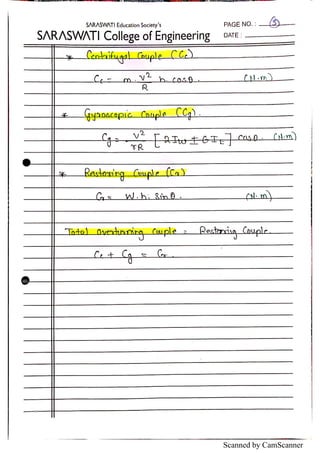 SARASWATI Education Society's
SARASWATI College of Engineering
PAGE NO.: 5
DATE:
* Centrifugal Couple (Cc)
Cc = m. V²/R h cos θ. (N.m)
* Gyroscopic Couple (Cg).
Cg = V²/rR [2Iw ± GIE] cos θ. (N.m)
* Restoring Couple (Cr)
Cr = W.h. Sin θ. (N.m)
Total Overturning Couple = Restoring Couple.
Cc + Cg = Cr.
Scanned by CamScanner